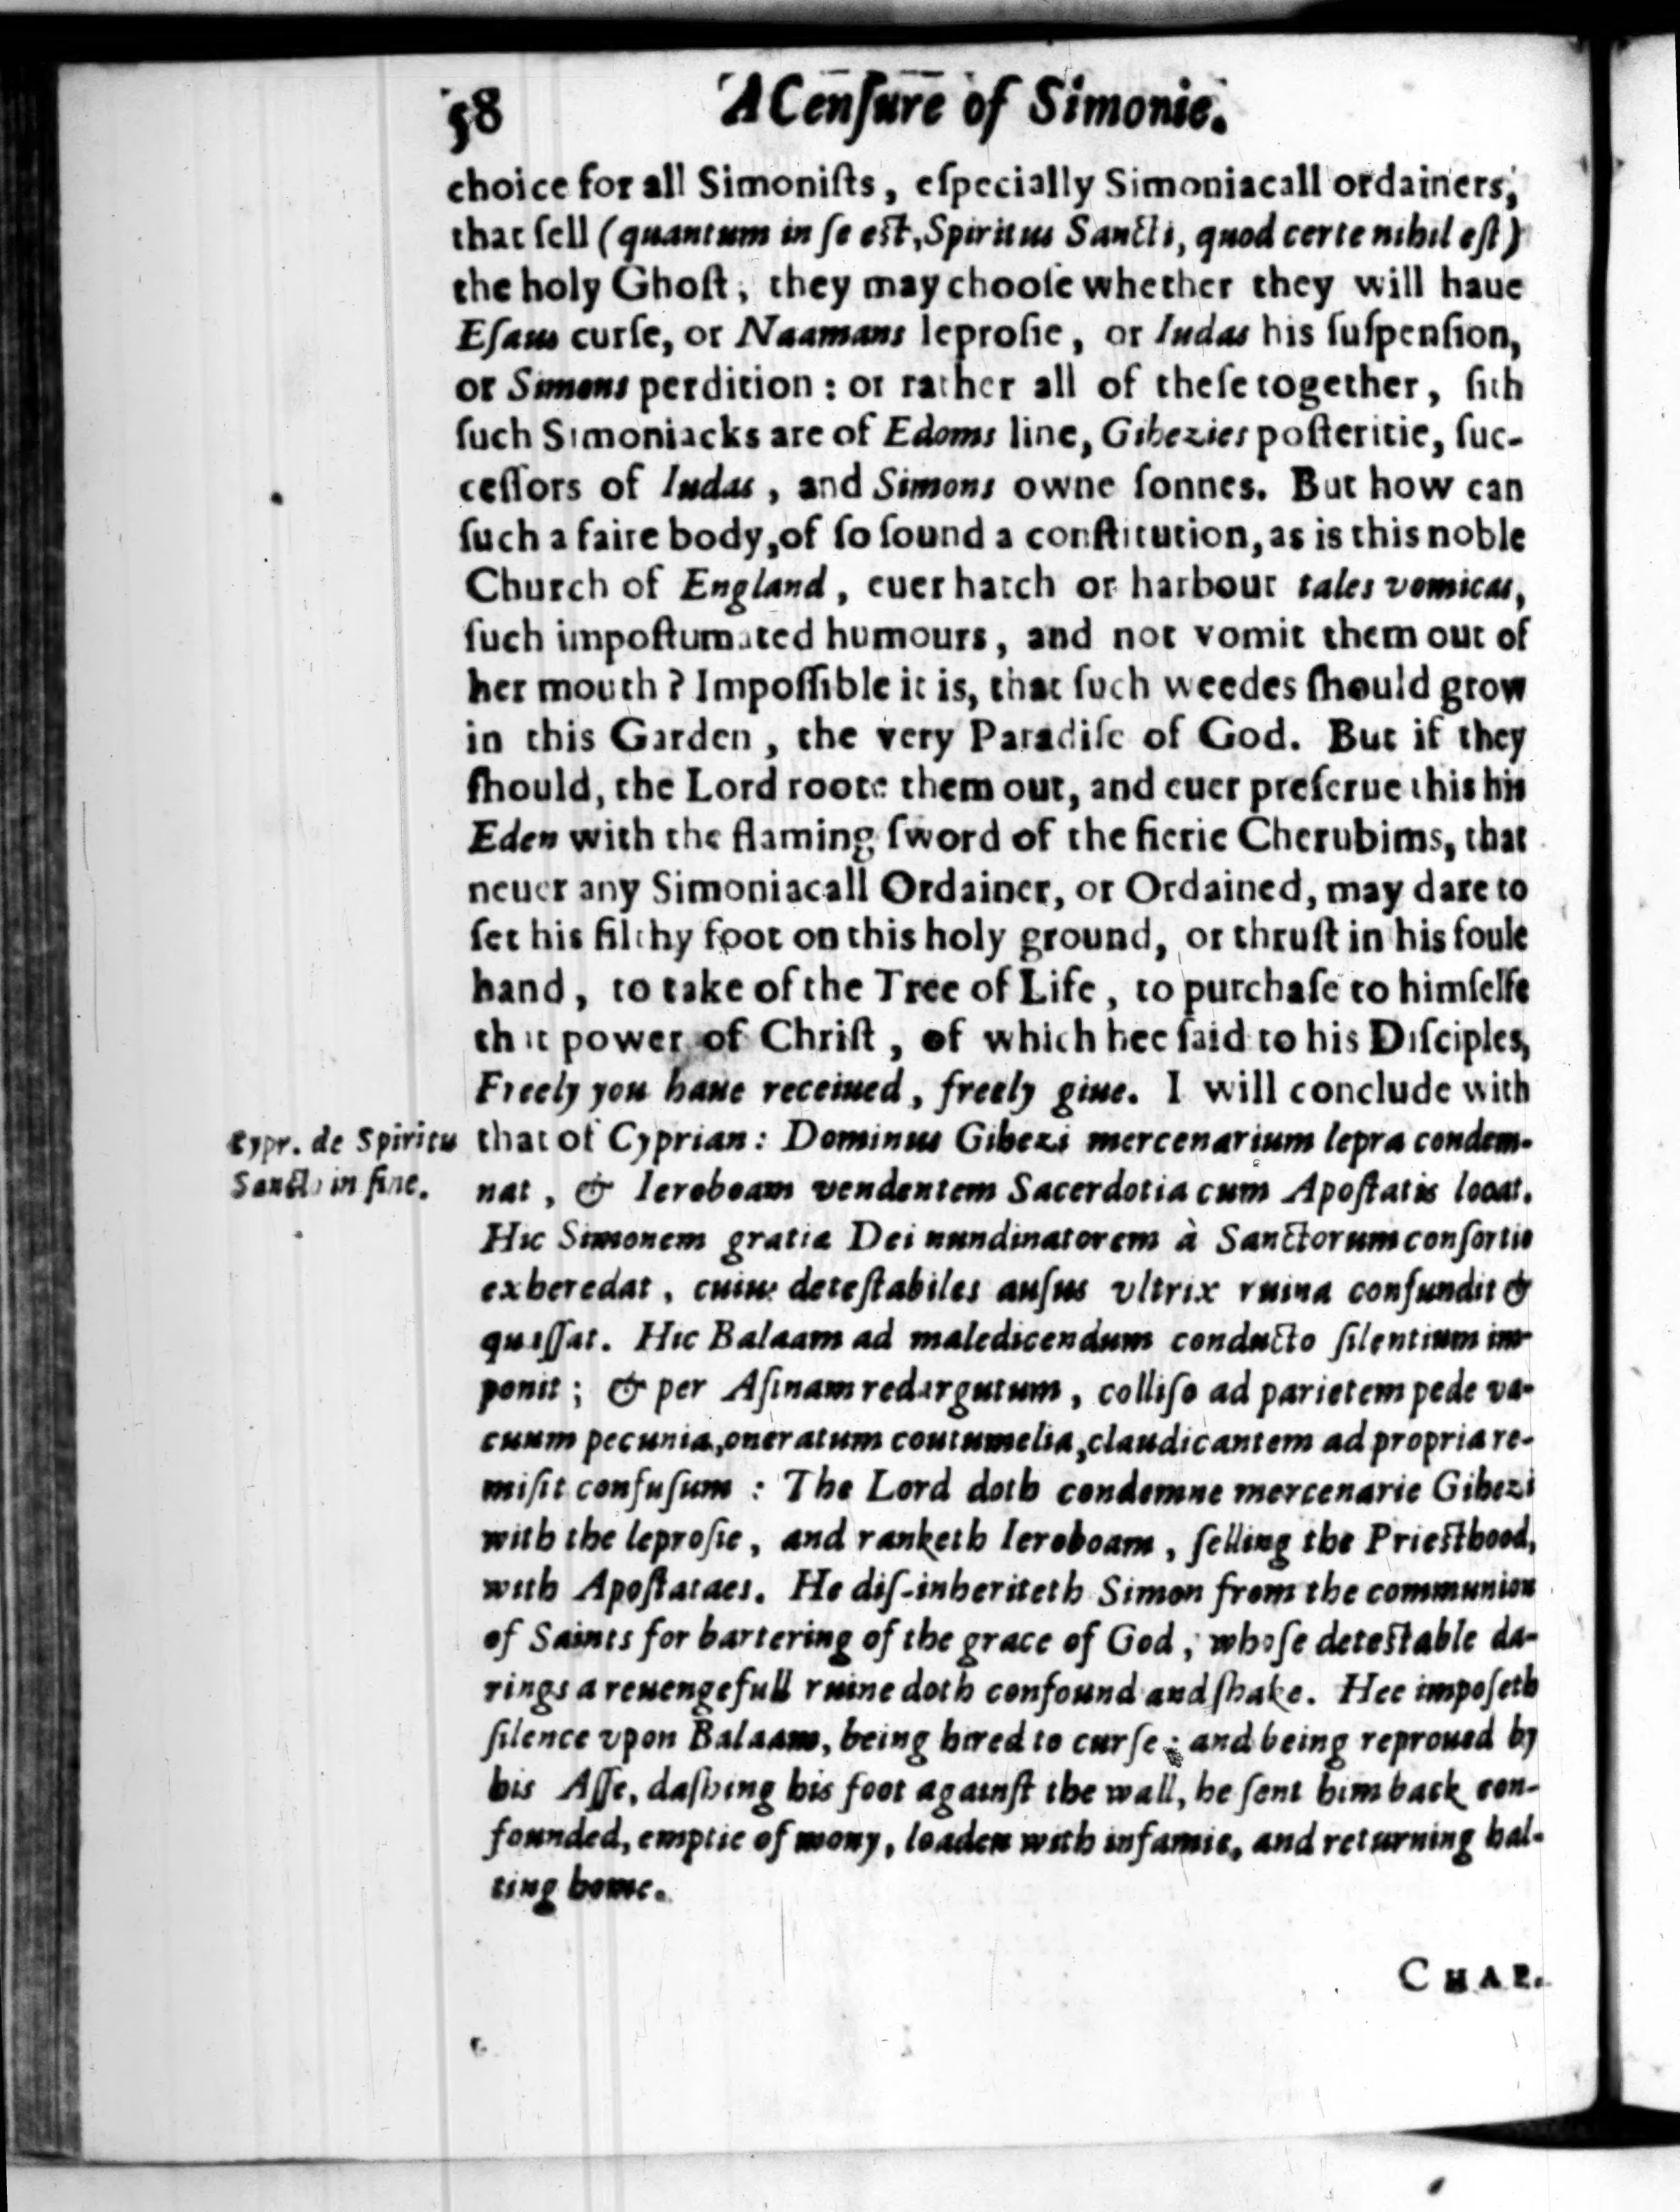 58 A Cenſure of Simonie.
choice for all Simoniſts, eſpecially Simoniacall ordainers,
that ſell (quantum in ſe eſt, Spiritus Sancti, quod certe nihil eſt)
the holy Ghoſt, they may chooſe whether they will haue
Eſaus curſe, or Naamans leproſie, or Iudas his ſuſpenſion,
or Simons perdition : or rather all of theſe together, ſith
ſuch Simoniacks are of Edoms line, Gihezies poſteritie, ſuc-
ceſſors of Iudas, and Simons owne ſonnes. But how can
ſuch a faire body, of ſo ſound a conſtitution, as is this noble
Church of England, euer hatch or harbour tales vomicas,
ſuch impoſtumated humours, and not vomit them out of
her mouth ? Impoſſible it is, that ſuch weedes ſhould grow
in this Garden, the very Paradiſe of God. But if they
ſhould, the Lord roote them out, and euer preſerue this his
Eden with the flaming ſword of the fierie Cherubims, that
neuer any Simoniacall Ordainer, or Ordained, may dare to
ſet his filthy foot on this holy ground, or thruſt in his foule
hand, to take of the Tree of Life, to purchaſe to himſelfe
that power of Chriſt, of which hee ſaid to his Diſciples,
Freely you haue receiued, freely giue. I will conclude with
that of Cyprian : Dominus Gihezi mercenarium lepra condem-
nat, & Ieroboam vendentem Sacerdotia cum Apoſtatis locat.
Hic Simonem gratiæ Dei nundinatorem à Sanctorum conſortio
exheredat, cuius deteſtabiles auſus vltrix ruina confundit &
quaſſat. Hic Balaam ad maledicendum conducto ſilentium im-
ponit ; & per Aſinam redargutum, colliſo ad parietem pede va-
cuum pecunia, oneratum contumelia, claudicantem ad propria re-
miſit confuſum : The Lord doth condemne mercenarie Gihezi
with the leproſie, and ranketh Ieroboam, ſelling the Prieſthood,
with Apoſtataes. He diſ-inheriteth Simon from the communion
of Saints for bartering of the grace of God, whoſe deteſtable da-
rings a reuengefull ruine doth confound and ſhake. Hee impoſeth
ſilence vpon Balaam, being hired to curſe : and being reproued by
his Aſſe, daſhing his foot againſt the wall, he ſent him back con-
founded, emptie of mony, loaden with infamie, and returning hal-
ting home.
Cypr. de Spiritu
Sancto in fine.
CHAP.